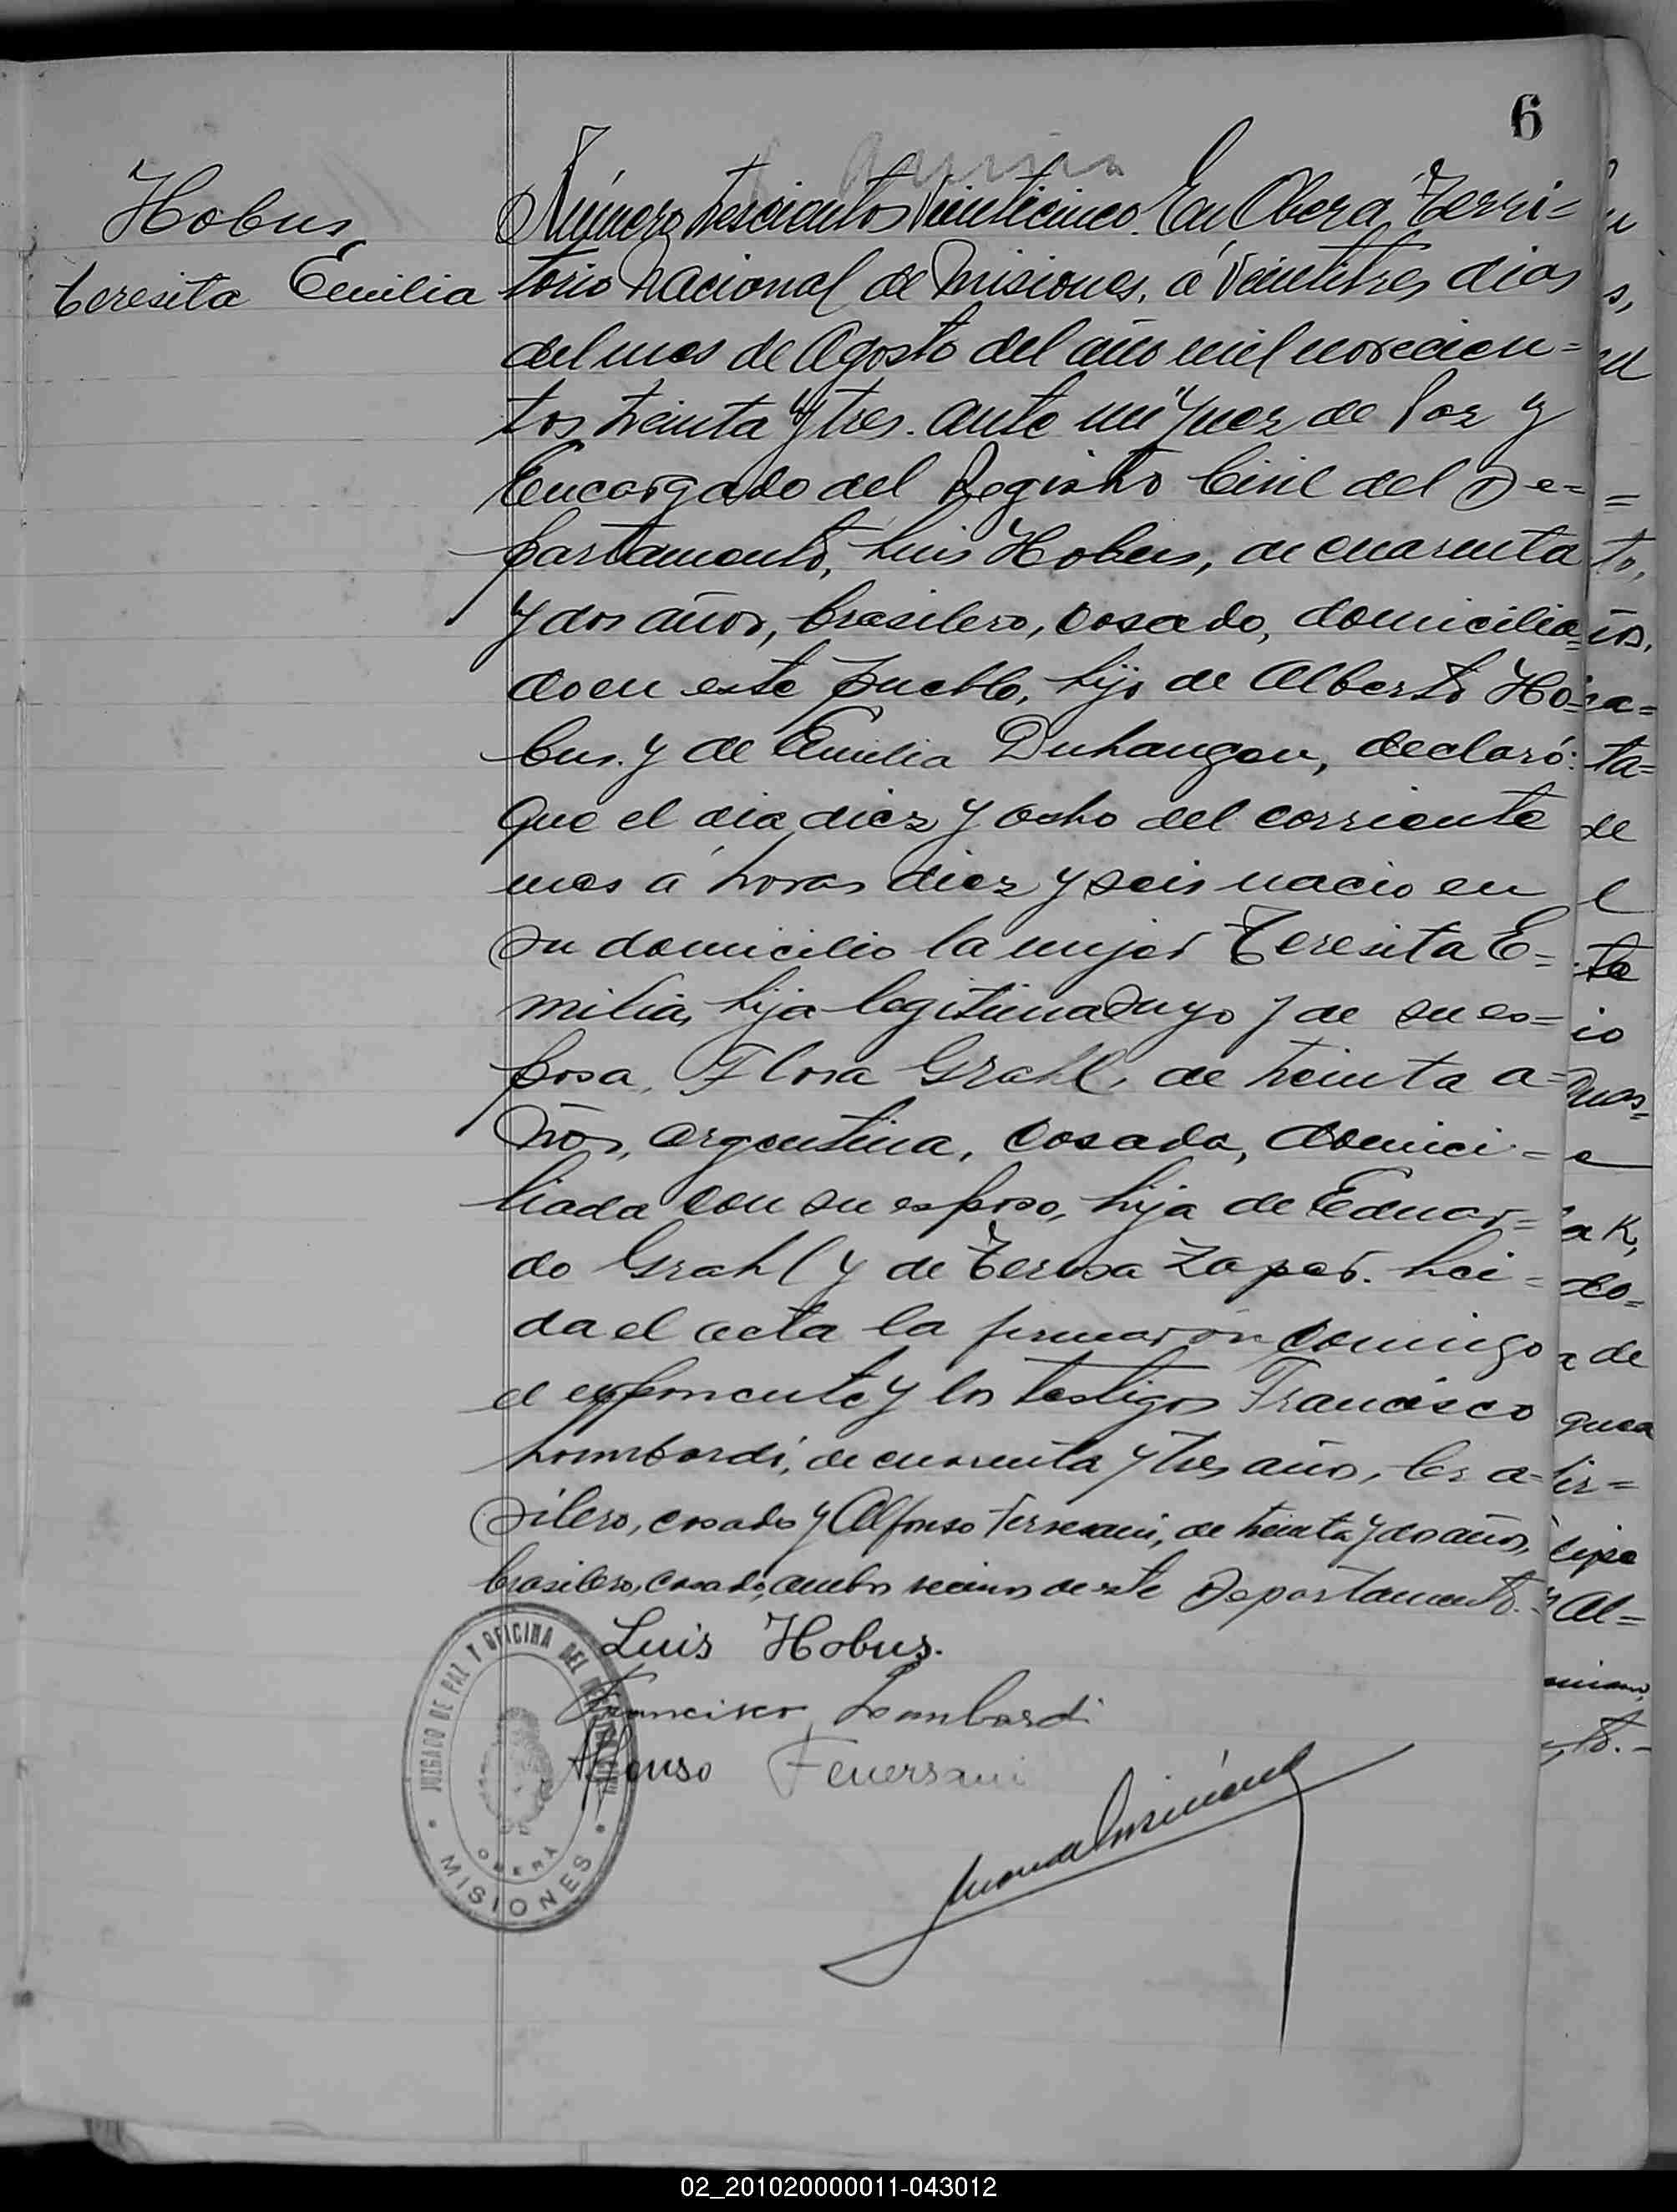 6
Hobus,
teresita Emilia
Número trescientos veinticinco. En Oberá, Terri=
torio Nacional de Misiones, á veintitres dias
del mes de Agosto del año mil novecien=
tos treinta y tres. ante mi Juez de Paz y
Encargado del Registro Civil del De=
partamento, Luis Hobus, de cuarenta
y dos años, brasilero, casado, domicilia=
do en este pueblo, hijo de Alberto Ho=
bus. y de Emilia Duhangen, declaró:
Que el dia diez y ocho del corriente
mes á horas diez y seis nacio en
su domicilio la mujer Teresita E=
milia, hija legitima suya y de su es=
posa, Flora Grahl, de treinta a=
ños, argentina, casada, domici=
liada con su esposo, hija de Eduar=
do Grahl y de Teresa Zaper. Lei=
da el acta la firmaron conmigo
el exponente y los testigos Francisco
Lombardi, de cuarenta y tres años, bra=
silero, casado y Alfonso, de treinta y dos años,
brasilero, casado, ambos vecinos de este Departamento.
Luis Hobus.
Francisco Lombardi
Alfonso
JUZGADO DE PAZ Y OFICINA DEL
OBERÁ
MISIONES
02_201020000011-043012